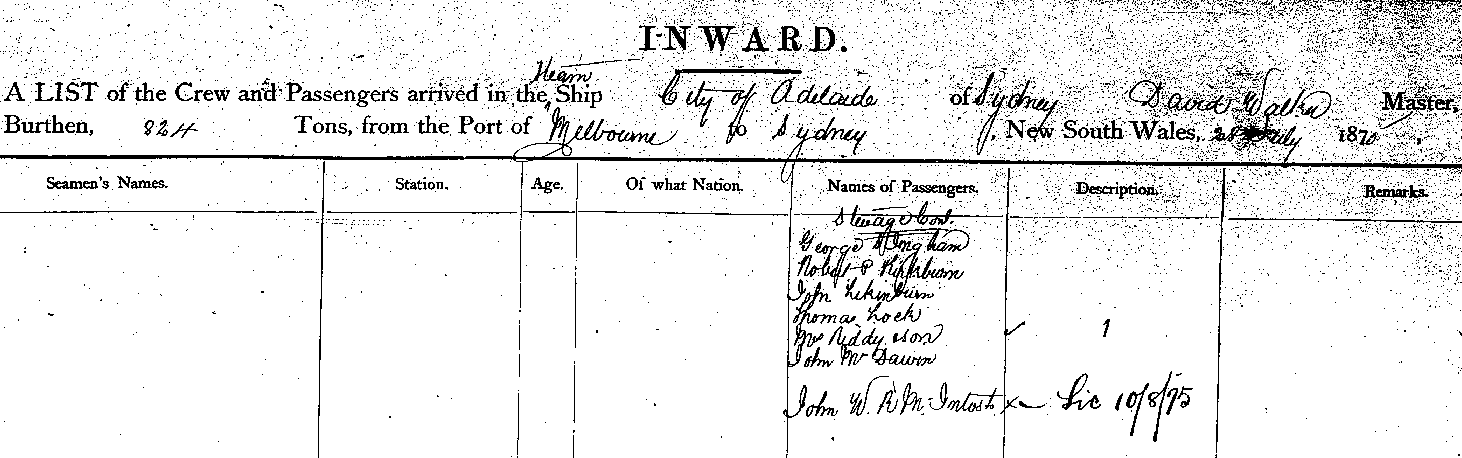 INWARD.
Steam
A LIST of the Crew and Passengers arrived in the Ship City of Adelaide of Sydney David Walker Master,
Burthen, 824 Tons, from the Port of Melbourne to Sydney, New South Wales, July 1870.
Seamen's Names. Station. Age. Of what Nation. Names of Passengers. Description. Remarks.
Steerage Cont.
George
Robert P
John
Thomas Lock
Mrs Reddy & son 1
John Mc
John W. R. McIntosh x 10/8/75